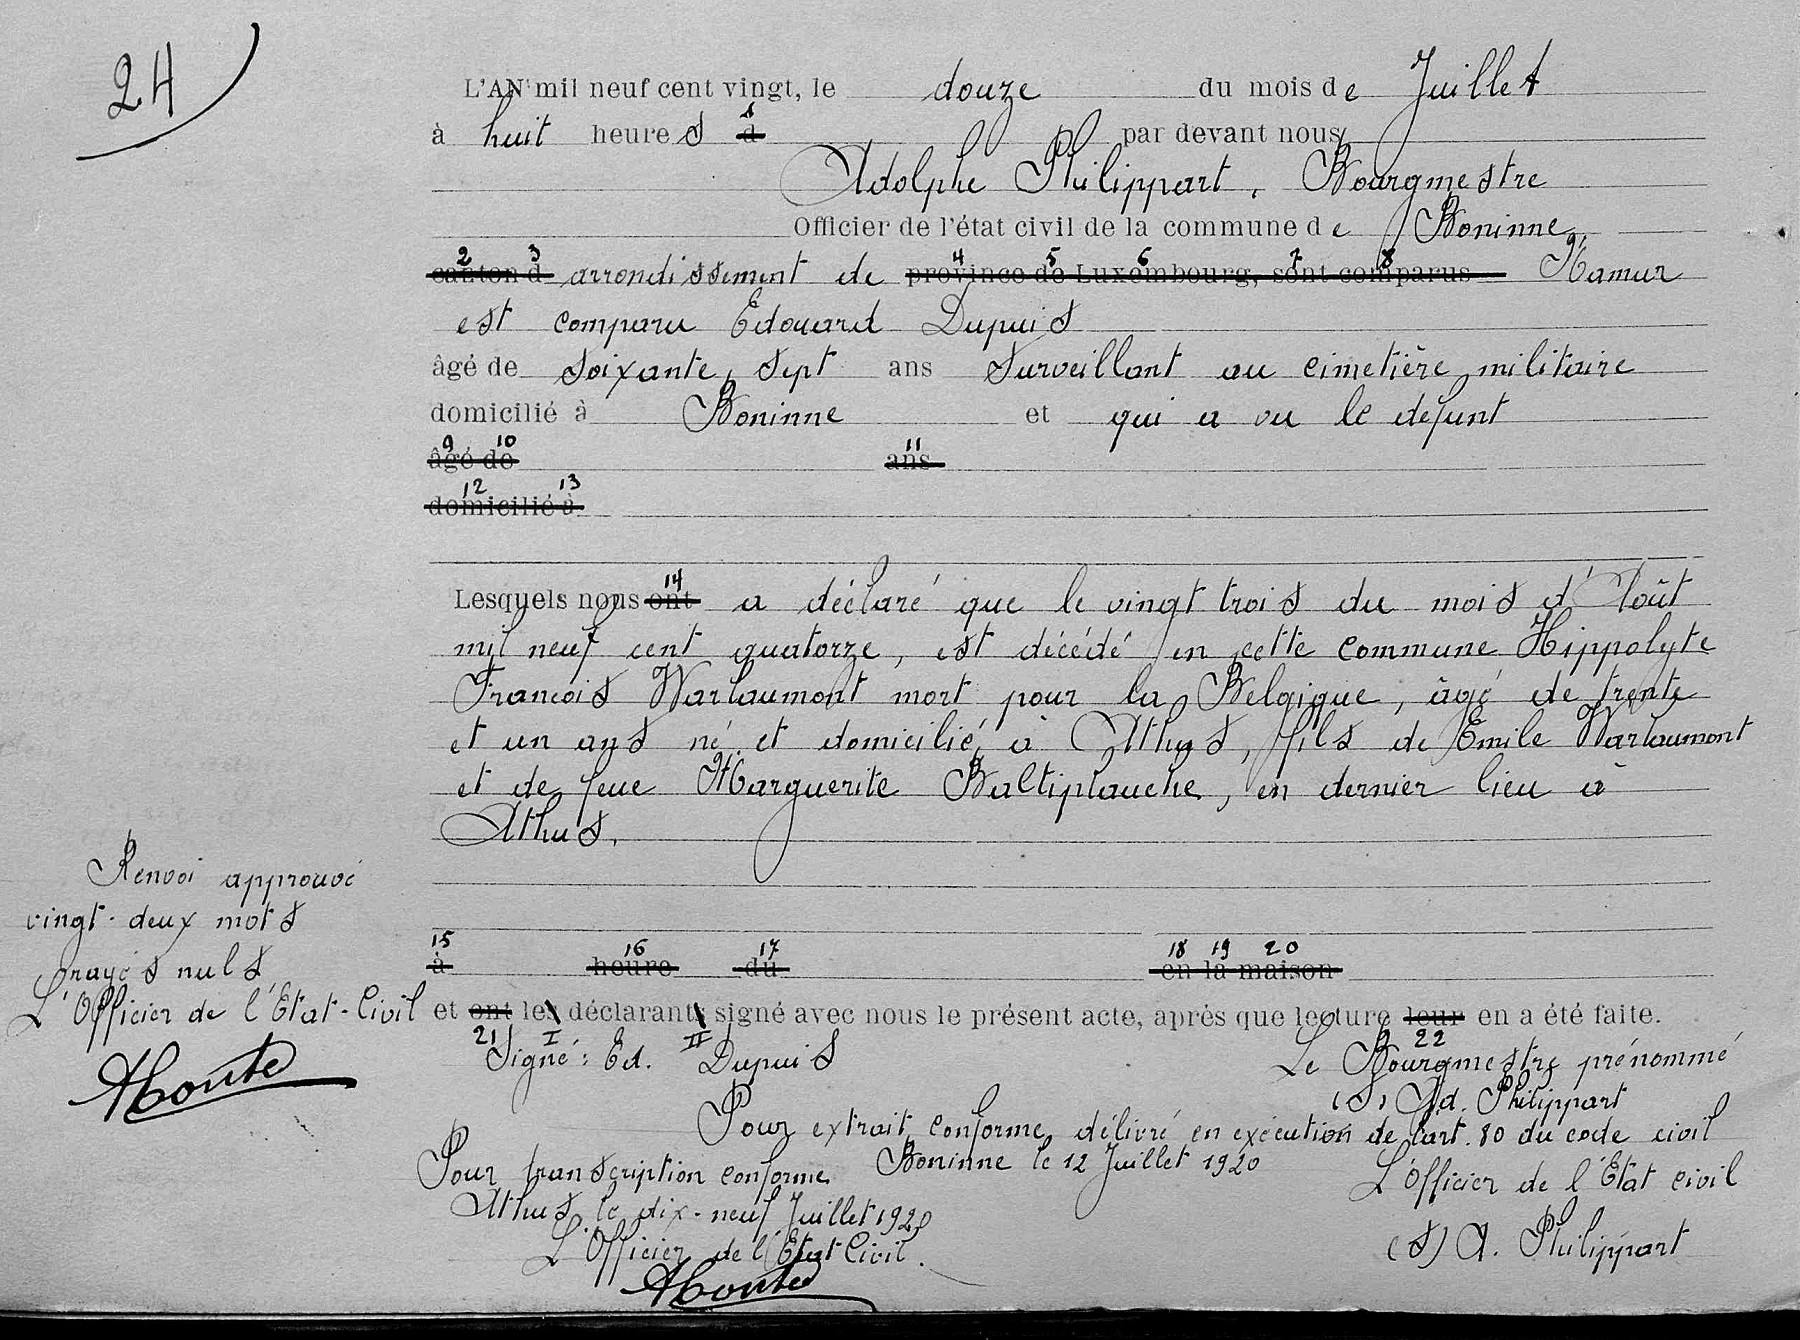 24
L'AN mil neuf cent vingt, le douze du mois de Juillet
1
à huit heures d par devant nous
Adolphe Philippart, Bourgmestre
Officier de l'état civil de la commune de Boninne
2 3 4 5 6 7 8
canton d arrondissement de province de Luxembourg, sont comparus Namur
est comparu Edouard Dupuis
âgé de soixante, sept ans Surveillant au cimetière militaire
domicilié à Boninne et qui a vu le défunt
9 10 11
âgé de ans
12 13
domicilié à
14
Lesquels nous ont a déclaré que le vingt trois du mois d'Août
mil neuf cent quatorze, est décédé en cette commune Hippolyte
Francois Warlaumont mort pour la Belgique, âgé de trente
et un ans né et domicilié à Athus, fils de Emile Warlaumont
et de feue Marguerite Baltiplauche, en dernier lieu à
Athus.
Renvoi approuvé
vingt-deux mots
rayés nuls
L'Officier de l'Etat-Civil
15 16 17 18 19 20
à heure du en la maison
et ont les déclarants signé avec nous le présent acte, après que lecture leur en a été faite.
21 I II 22
Signé: Ed. Dupuis Le Bourgmestre prénommé
(S) Ad. Philippart
Pour extrait conforme délivré en exécution de l'art. 80 du code civil
Boninne le 12 Juillet 1920
L'Officier de l'Etat civil
(S) A. Philippart
Pour transcription conforme
Athus, le dix-neuf Juillet 1920
L'Officier de l'Etat-Civil.